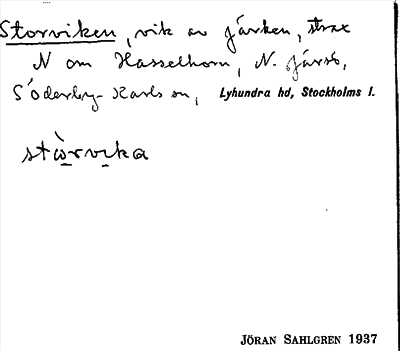 Storviken, vik av Järken, strax
N om Hasselhorn, N. Järsö,
Söderby-Karls sn, Lyhundra hd, Stockholms l.
stòrvika
JÖRAN SAHLGREN 1937